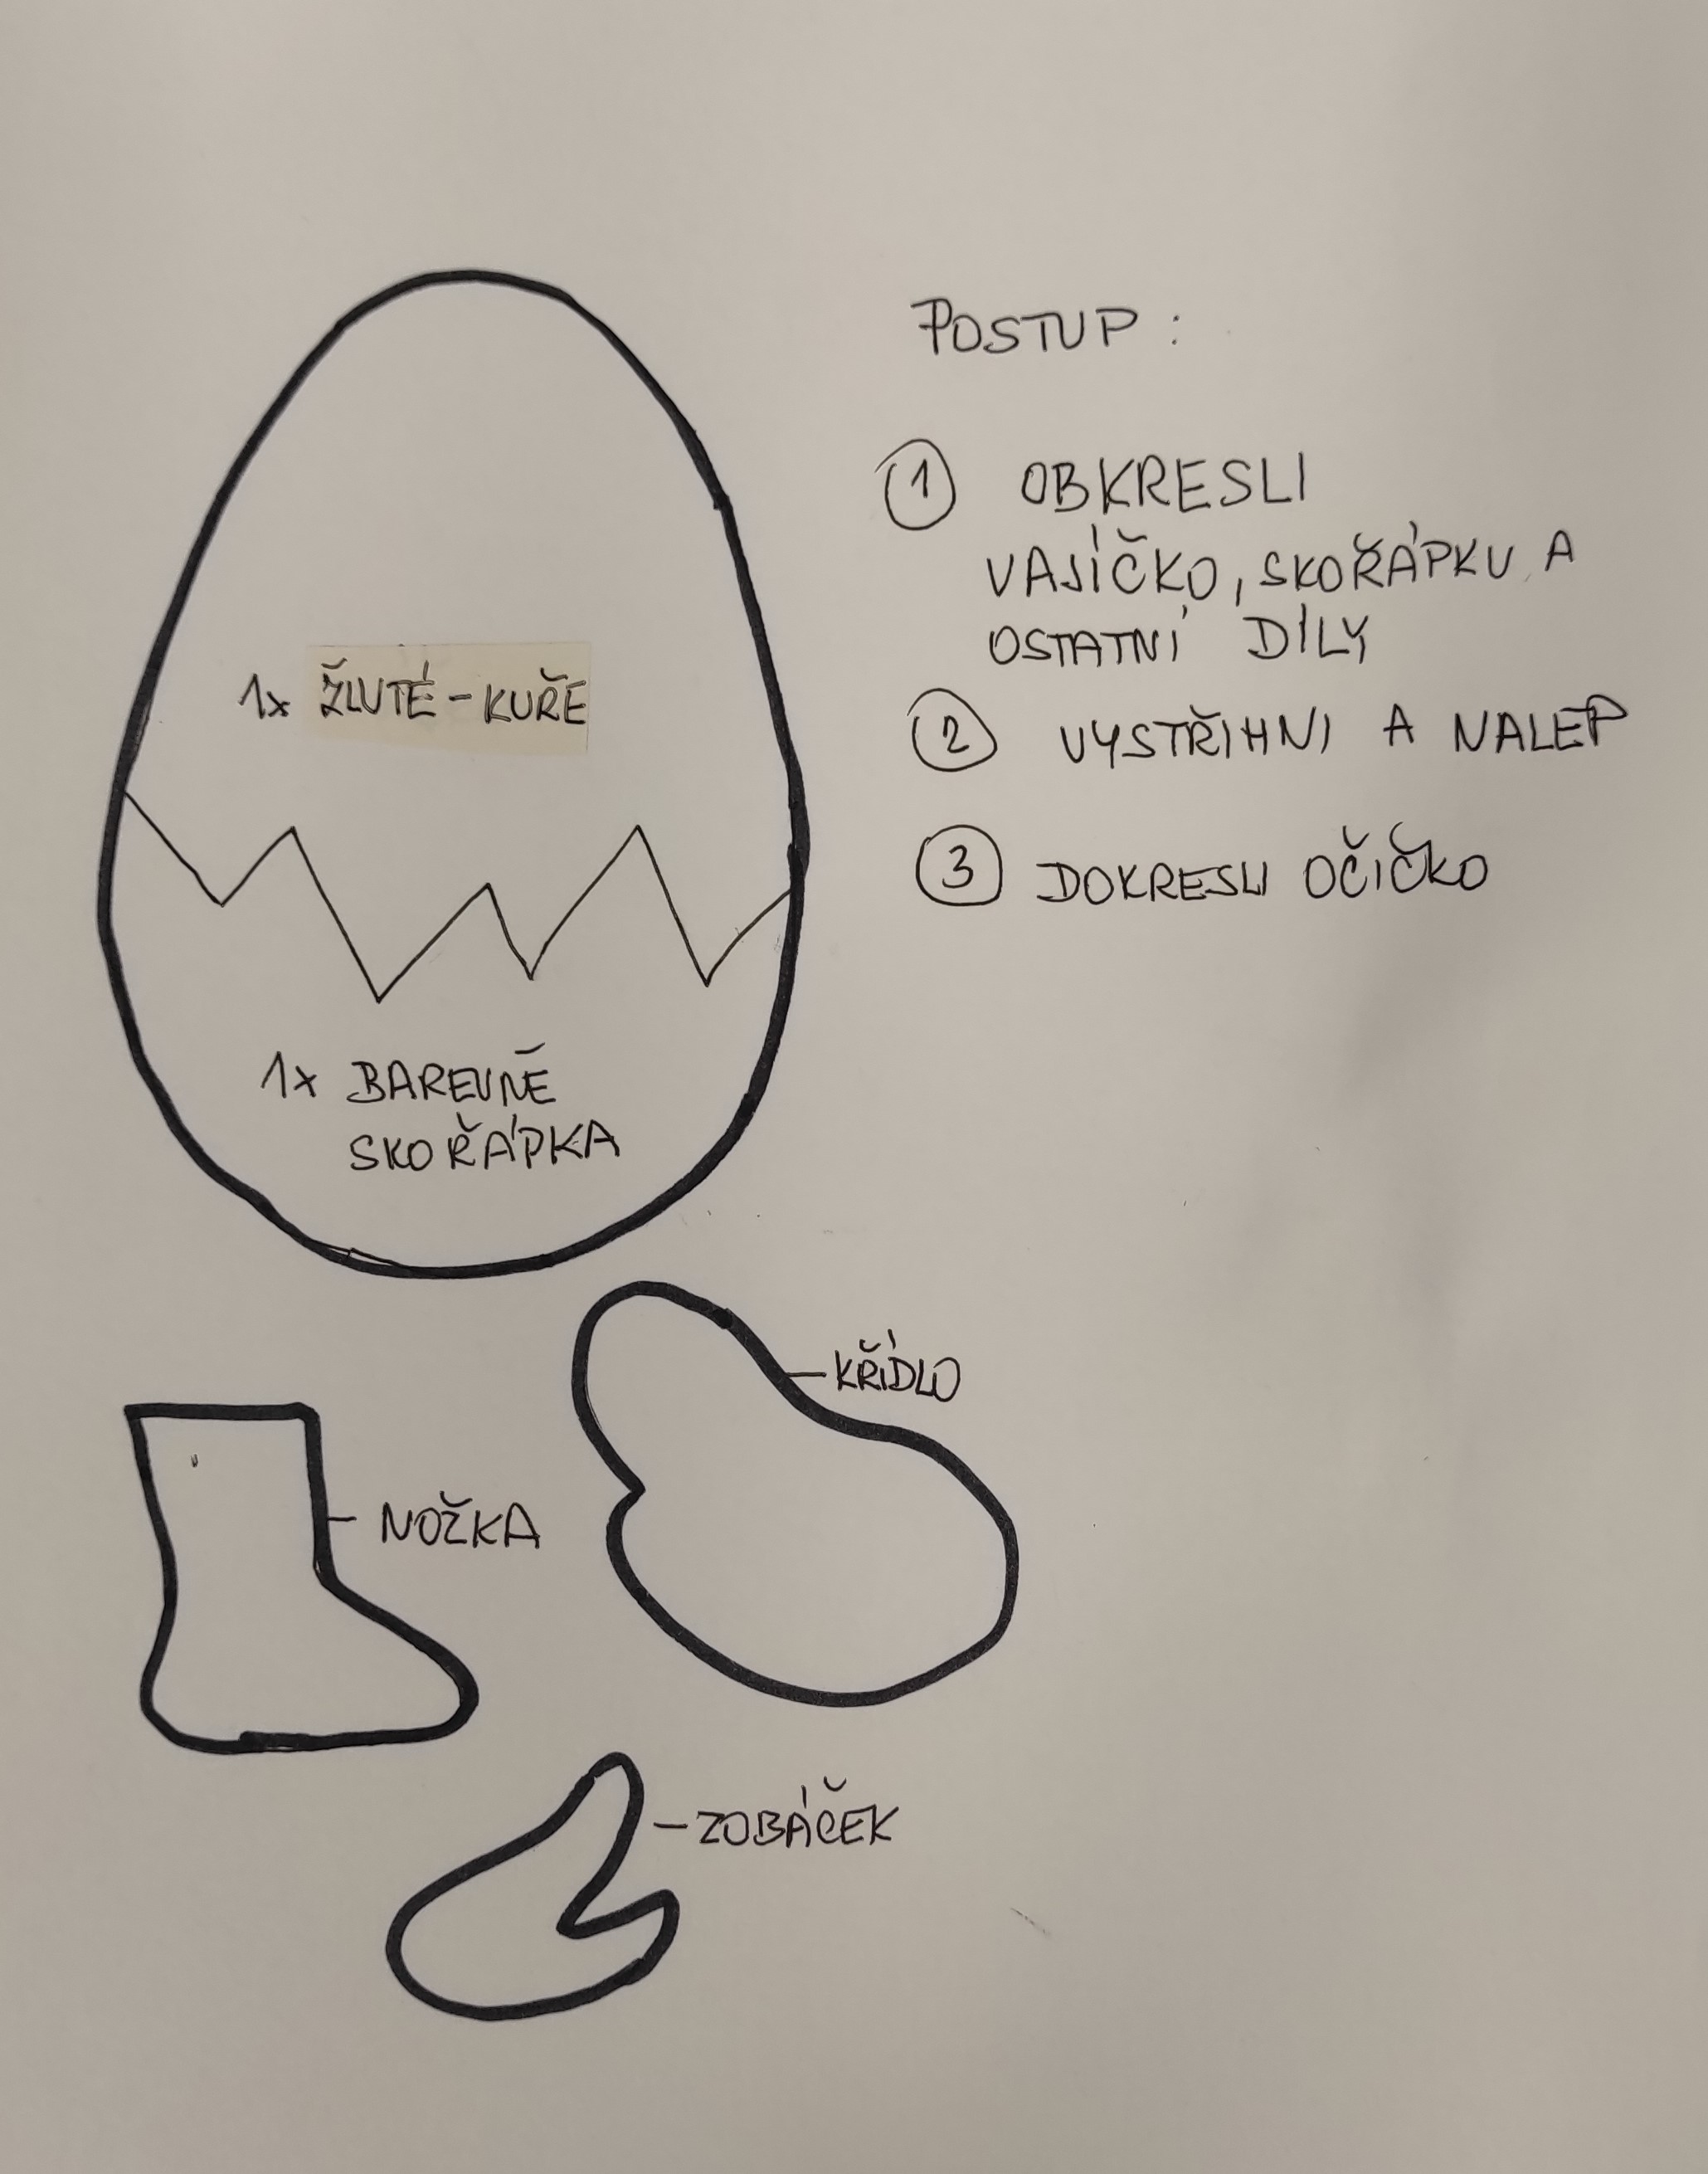 POSTUP :
1 OBKRESLI
VAJÍČKO, SKOŘÁPKU A
OSTATNÍ DÍLY
2 VYSTŘIHNI A NALEP
3 DOKRESLI OČIČKO
1x ŽLUTÉ - KUŘE
1x BAREVNĚ
SKOŘÁPKA
KŘÍDLO
NOŽKA
ZOBÁČEK